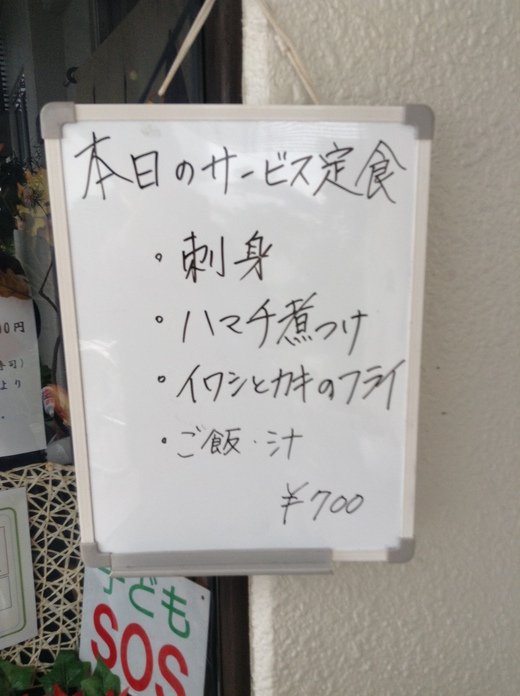 本日のサービス定食
・刺身
・ハマチ煮つけ
・イワシとカキのフライ
・ご飯・汁
¥700
00円
司)
より
子ども
SOS